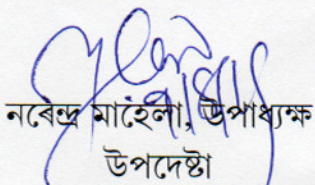 নৰেন্দ্ৰ মাহেলা, উপাধ্যক্ষ
উপদেষ্টা